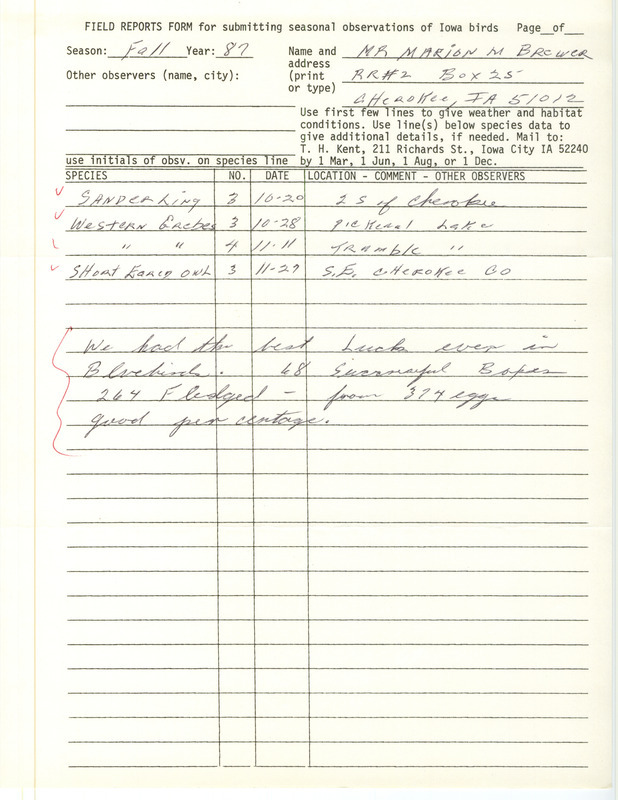 FIELD REPORTS FORM for submitting seasonal observations of Iowa birds Page__of__
Season: Fall Year: 87 Name and MR MARION M BREWER
address
Other observers (name, city): (print RR#2 Box 25
or type)
CHEROKEE, IA 51012
Use first few lines to give weather and habitat
conditions. Use line(s) below species data to
give additional details, if needed. Mail to:
T. H. Kent, 211 Richards St., Iowa City IA 52240
use initials of obsv. on species line by 1 Mar, 1 Jun, 1 Aug, or 1 Dec.
SPECIES NO. DATE LOCATION - COMMENT - OTHER OBSERVERS
SANDERLING 3 10-20 2 S of Cherokee
WESTERN Grebes 3 10-28 Pickeral Lake
" " 4 11-11 TRUMBLE "
SHORT EARED OWL 3 11-27 S.E. CHEROKEE CO
We had the best Luck ever in
Bluebirds. 68 Successful Boxes
264 Fledged - from 374 eggs
good per centage.